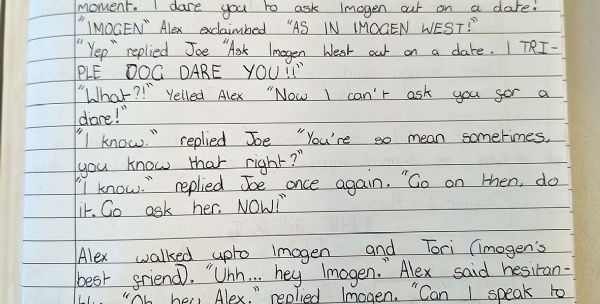 moment. I dare you to ask Imogen out on a date!
"IMOGEN" Alex exclaimbed "AS IN IMOGEN WEST!"
"Yep" replied Joe "Ask Imogen West out on a date. I TRI-
PLE DOG DARE YOU!!"
"What?!" Yelled Alex "Now I can't ask you for a
dare!"
"I know." replied Joe "You're so mean sometimes,
you know that right?"
"I know." replied Joe once again. "Go on then, do
it. Go ask her. NOW!"
Alex walked upto Imogen and Tori (imogen's
best friend). "Uhh... hey Imogen." Alex said hesitan-
"Oh hey Alex." replied Imogen. "Can I speak to